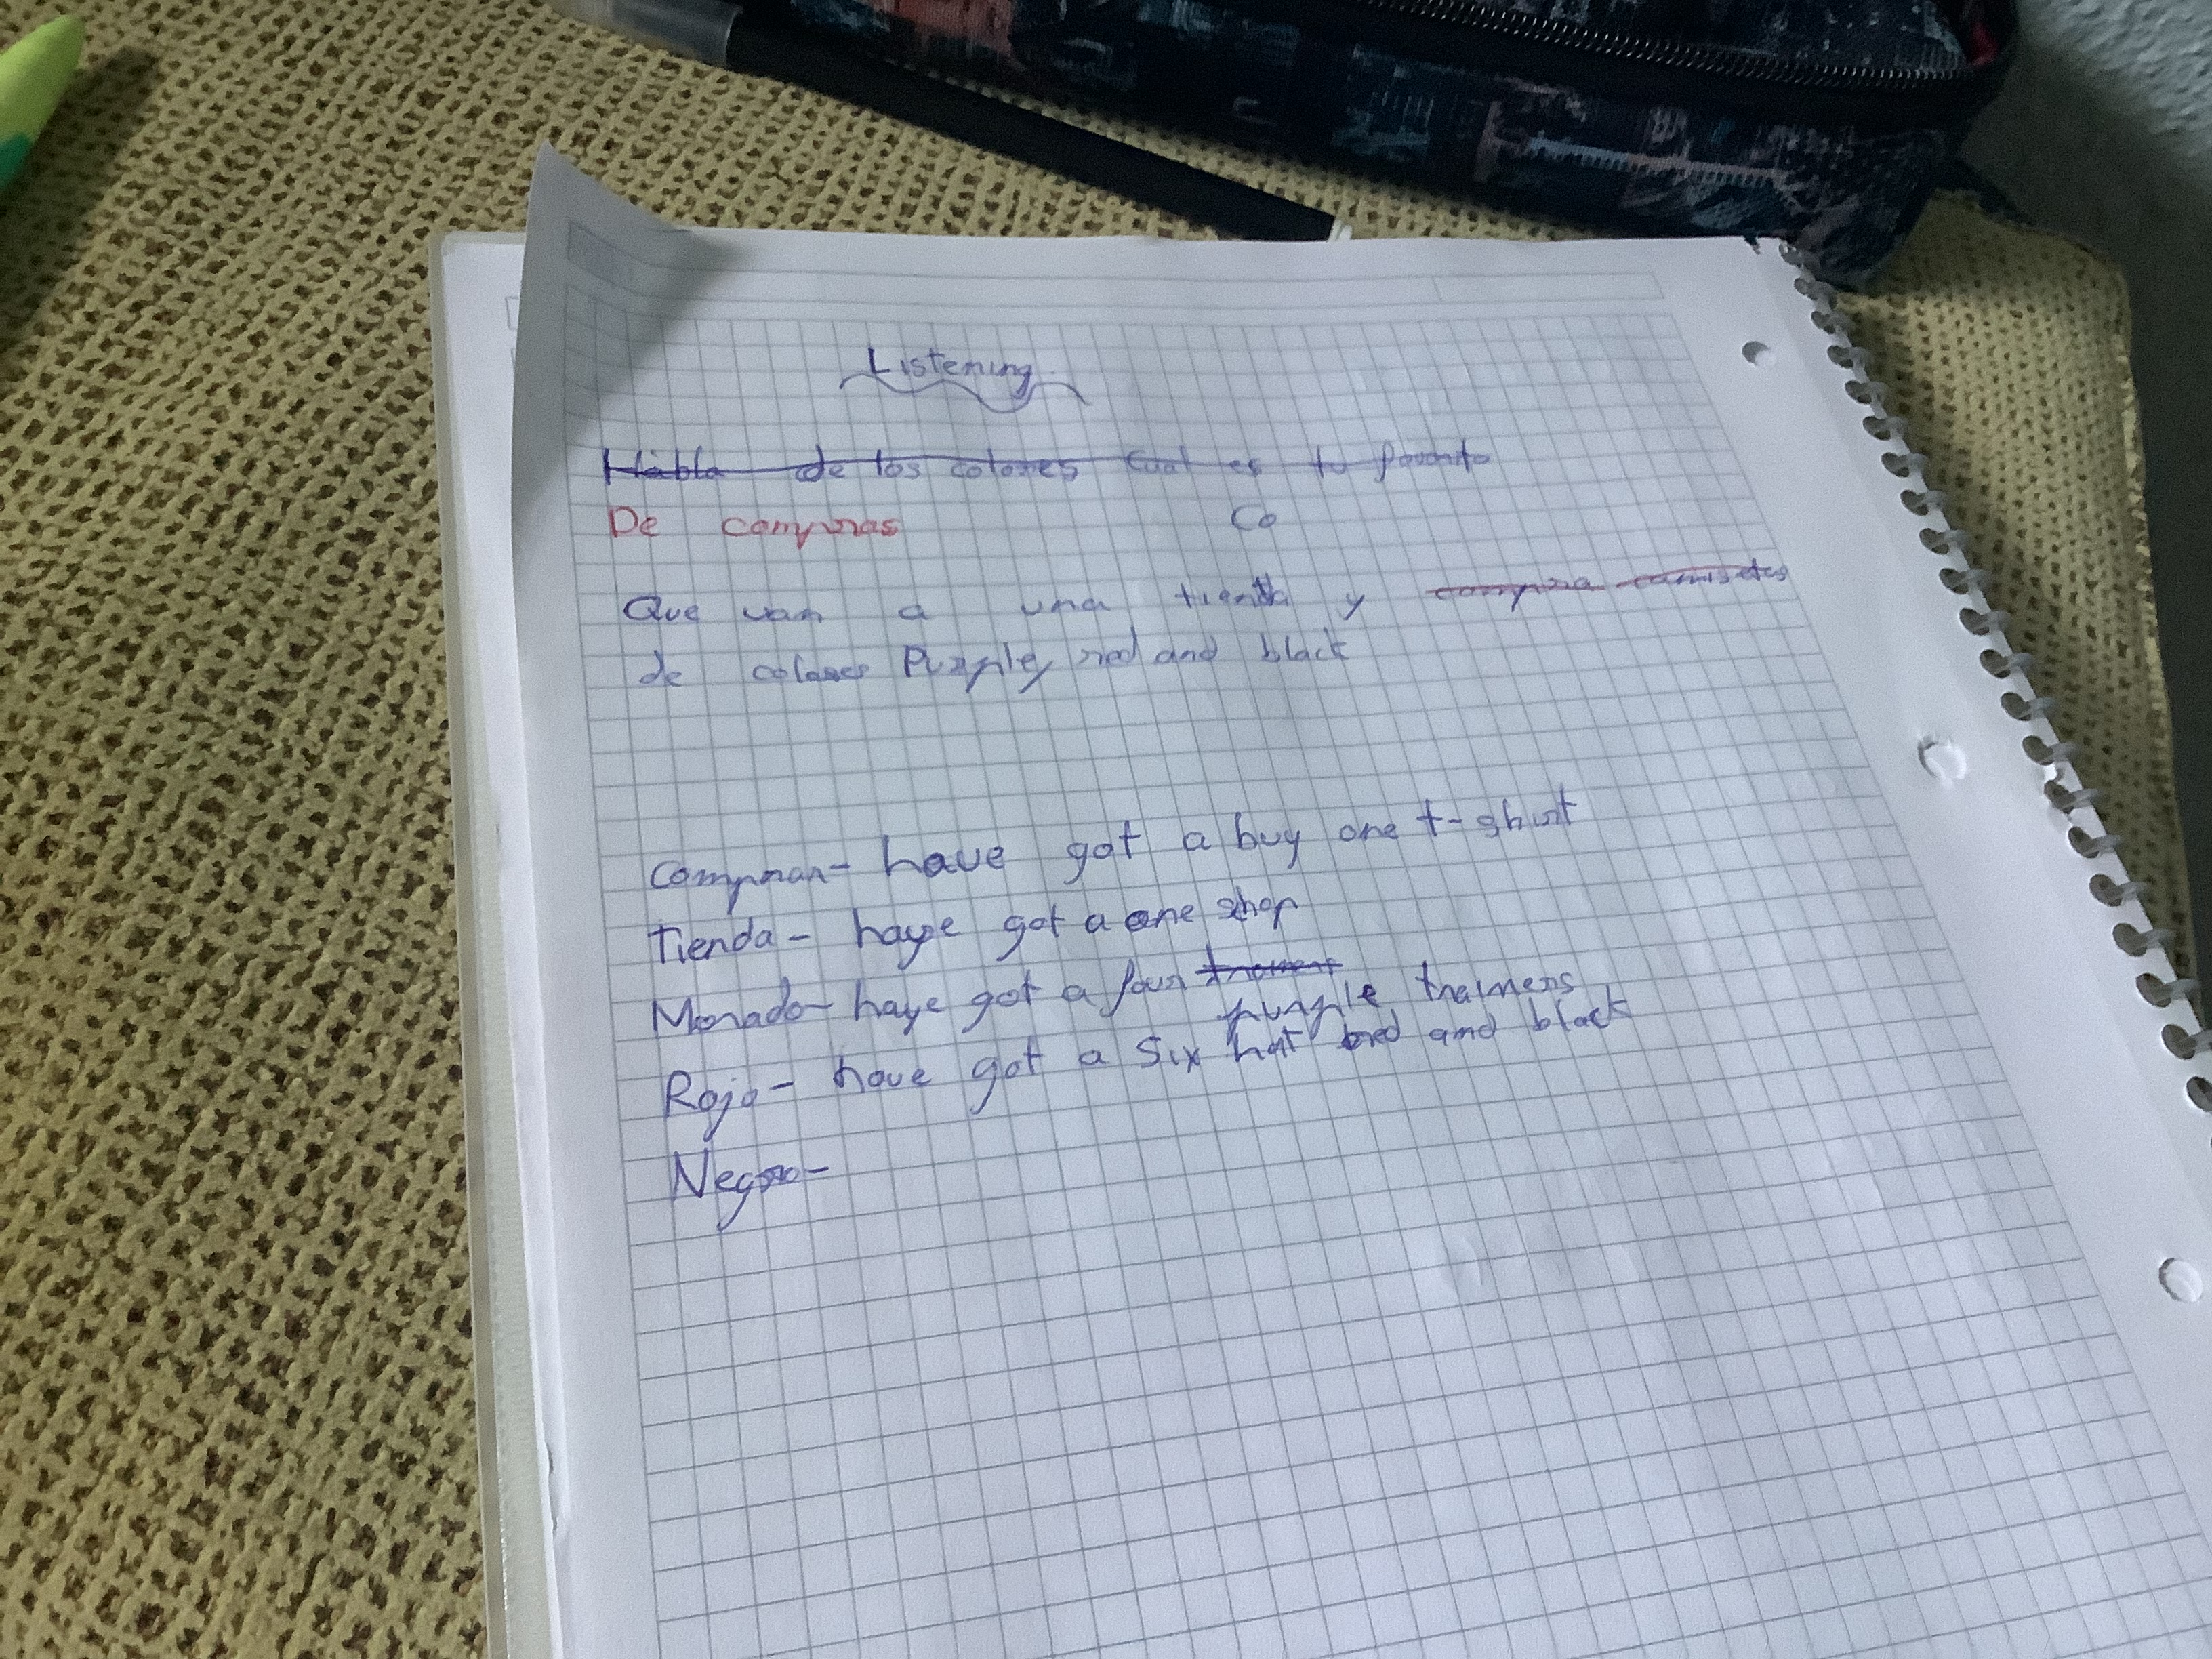 Listening
Habla de los colores Cual es tu favorito
De compras Co
Que van a una tienda y compra camisetas
de colores Purple, red and black
Compran- have got a buy one t-shirt
Tienda- have got a one shop
Morado- have got a four trainers
purple trainers
Rojo- have got a six hat red and black
Negro-